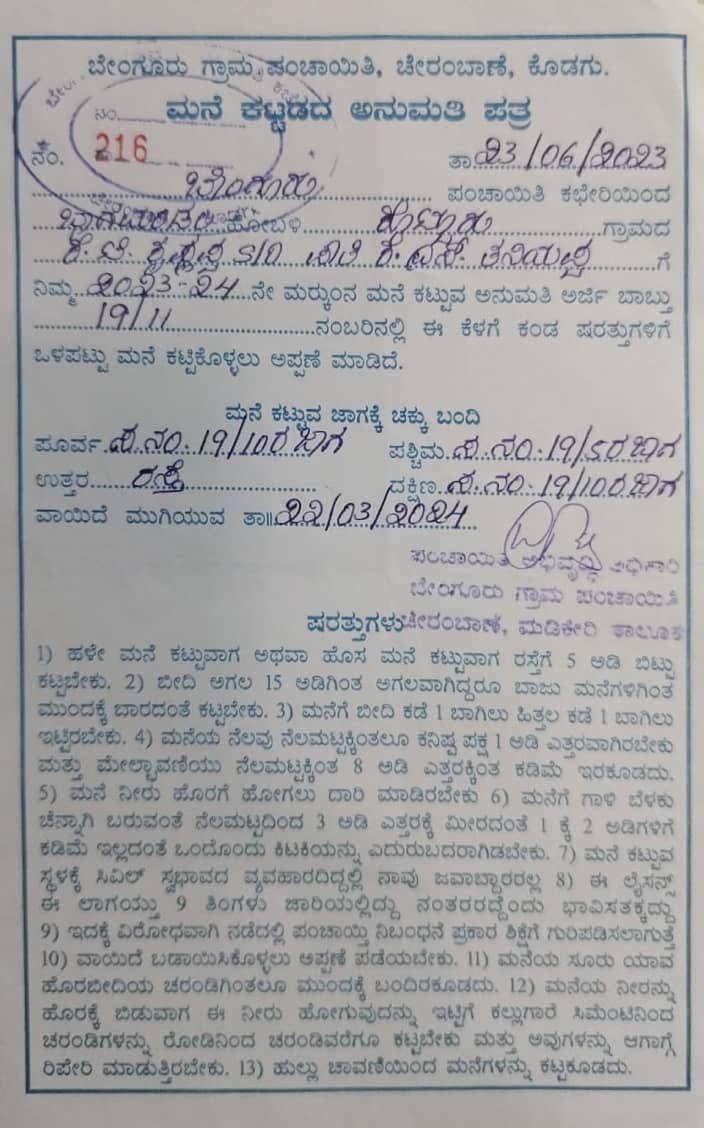 ಬೇಂಗೂರು ಗ್ರಾಮ ಪಂಚಾಯಿತಿ, ಚೇರಂಬಾಣೆ, ಕೊಡಗು.
ಮನೆ ಕಟ್ಟಡದ ಅನುಮತಿ ಪತ್ರ
ನಂ. 216 ತಾ 23/06/2023
ಬೇಂಗೂರು ಪಂಚಾಯಿತಿ ಕಛೇರಿಯಿಂದ
ಭಾಗಮಂಡಲ ಹೋಬಳಿ ಗ್ರಾಮದ
S/O ಗೆ
ನಿಮ್ಮ 2023-24 ನೇ ಮರ್‍ಕುಂನ ಮನೆ ಕಟ್ಟುವ ಅನುಮತಿ ಅರ್ಜಿ ಬಾಬ್ತು
19/11 ನಂಬರಿನಲ್ಲಿ ಈ ಕೆಳಗೆ ಕಂಡ ಷರತ್ತುಗಳಿಗೆ
ಒಳಪಟ್ಟು ಮನೆ ಕಟ್ಟಿಕೊಳ್ಳಲು ಅಪ್ಪಣೆ ಮಾಡಿದೆ.
ಮನೆ ಕಟ್ಟುವ ಜಾಗಕ್ಕೆ ಚಕ್ಕು ಬಂದಿ
ಪೂರ್ವ ಸ.ನಂ. 19/10ರ ಜಾಗ ಪಶ್ಚಿಮ ಸ.ನಂ. 19/5ರ ಜಾಗ
ಉತ್ತರ ರಸ್ತೆ ದಕ್ಷಿಣ ಸ.ನಂ. 19/10ರ ಜಾಗ
ವಾಯಿದೆ ಮುಗಿಯುವ ತಾ॥ 22/03/2024
ಪಂಚಾಯಿತಿ ಅಭಿವೃದ್ಧಿ ಅಧಿಕಾರಿ
ಬೇಂಗೂರು ಗ್ರಾಮ ಪಂಚಾಯಿತಿ
ಷರತ್ತುಗಳು ಚೇರಂಬಾಣೆ, ಮಡಿಕೇರಿ ತಾಲೂಕು
1) ಹಳೇ ಮನೆ ಕಟ್ಟುವಾಗ ಅಥವಾ ಹೊಸ ಮನೆ ಕಟ್ಟುವಾಗ ರಸ್ತೆಗೆ 5 ಅಡಿ ಬಿಟ್ಟು
ಕಟ್ಟಬೇಕು. 2) ಬೀದಿ ಅಗಲ 15 ಅಡಿಗಿಂತ ಅಗಲವಾಗಿದ್ದರೂ ಬಾಜು ಮನೆಗಳಿಗಿಂತ
ಮುಂದಕ್ಕೆ ಬಾರದಂತೆ ಕಟ್ಟಬೇಕು. 3) ಮನೆಗೆ ಬೀದಿ ಕಡೆ 1 ಬಾಗಿಲು ಹಿತ್ತಲ ಕಡೆ 1 ಬಾಗಿಲು
ಇಟ್ಟಿರಬೇಕು. 4) ಮನೆಯ ನೆಲವು ನೆಲಮಟ್ಟಕ್ಕಿಂತಲೂ ಕನಿಷ್ಟ ಪಕ್ಷ 1 ಅಡಿ ಎತ್ತರವಾಗಿರಬೇಕು
ಮತ್ತು ಮೇಲ್ಛಾವಣಿಯು ನೆಲಮಟ್ಟಕ್ಕಿಂತ 8 ಅಡಿ ಎತ್ತರಕ್ಕಿಂತ ಕಡಿಮೆ ಇರಕೂಡದು.
5) ಮನೆ ನೀರು ಹೊರಗೆ ಹೋಗಲು ದಾರಿ ಮಾಡಿರಬೇಕು 6) ಮನೆಗೆ ಗಾಳಿ ಬೆಳಕು
ಚೆನ್ನಾಗಿ ಬರುವಂತೆ ನೆಲಮಟ್ಟದಿಂದ 3 ಅಡಿ ಎತ್ತರಕ್ಕೆ ಮೀರದಂತೆ 1 ಕ್ಕೆ 2 ಅಡಿಗಳಿಗೆ
ಕಡಿಮೆ ಇಲ್ಲದಂತೆ ಒಂದೊಂದು ಕಿಟಕಿಯನ್ನು ಎದುರುಬದರಾಗಿಡಬೇಕು. 7) ಮನೆ ಕಟ್ಟುವ
ಸ್ಥಳಕ್ಕೆ ಸಿವಿಲ್ ಸ್ವಭಾವದ ವ್ಯವಹಾರದಿದ್ದಲ್ಲಿ ನಾವು ಜವಾಬ್ದಾರರಲ್ಲ 8) ಈ ಲೈಸನ್ಸ್
ಈ ಲಾಗಯ್ತು 9 ತಿಂಗಳು ಜಾರಿಯಲ್ಲಿದ್ದು ನಂತರರದ್ದೆಂದು ಭಾವಿಸತಕ್ಕದ್ದು
9) ಇದಕ್ಕೆ ವಿರೋಧವಾಗಿ ನಡೆದಲ್ಲಿ ಪಂಚಾಯ್ತಿ ನಿಬಂಧನೆ ಪ್ರಕಾರ ಶಿಕ್ಷೆಗೆ ಗುರಿಪಡಿಸಲಾಗುತ್ತೆ
10) ವಾಯಿದೆ ಬಡಾಯಿಸಿಕೊಳ್ಳಲು ಅಪ್ಪಣೆ ಪಡೆಯಬೇಕು. 11) ಮನೆಯ ಸೂರು ಯಾವ
ಹೊರಬೀದಿಯ ಚರಂಡಿಗಿಂತಲೂ ಮುಂದಕ್ಕೆ ಬಂದಿರಕೂಡದು. 12) ಮನೆಯ ನೀರನ್ನು
ಹೊರಕ್ಕೆ ಬಿಡುವಾಗ ಈ ನೀರು ಹೋಗುವುದನ್ನು ಇಟ್ಟಿಗೆ ಕಲ್ಲುಗಾರೆ ಸಿಮೆಂಟಿನಿಂದ
ಚರಂಡಿಗಳನ್ನು ರೋಡಿನಿಂದ ಚರಂಡಿವರೆಗೂ ಕಟ್ಟಬೇಕು ಮತ್ತು ಅವುಗಳನ್ನು ಆಗಾಗ್ಗೆ
ರಿಪೇರಿ ಮಾಡುತ್ತಿರಬೇಕು. 13) ಹುಲ್ಲು ಚಾವಣಿಯಿಂದ ಮನೆಗಳನ್ನು ಕಟ್ಟಕೂಡದು.